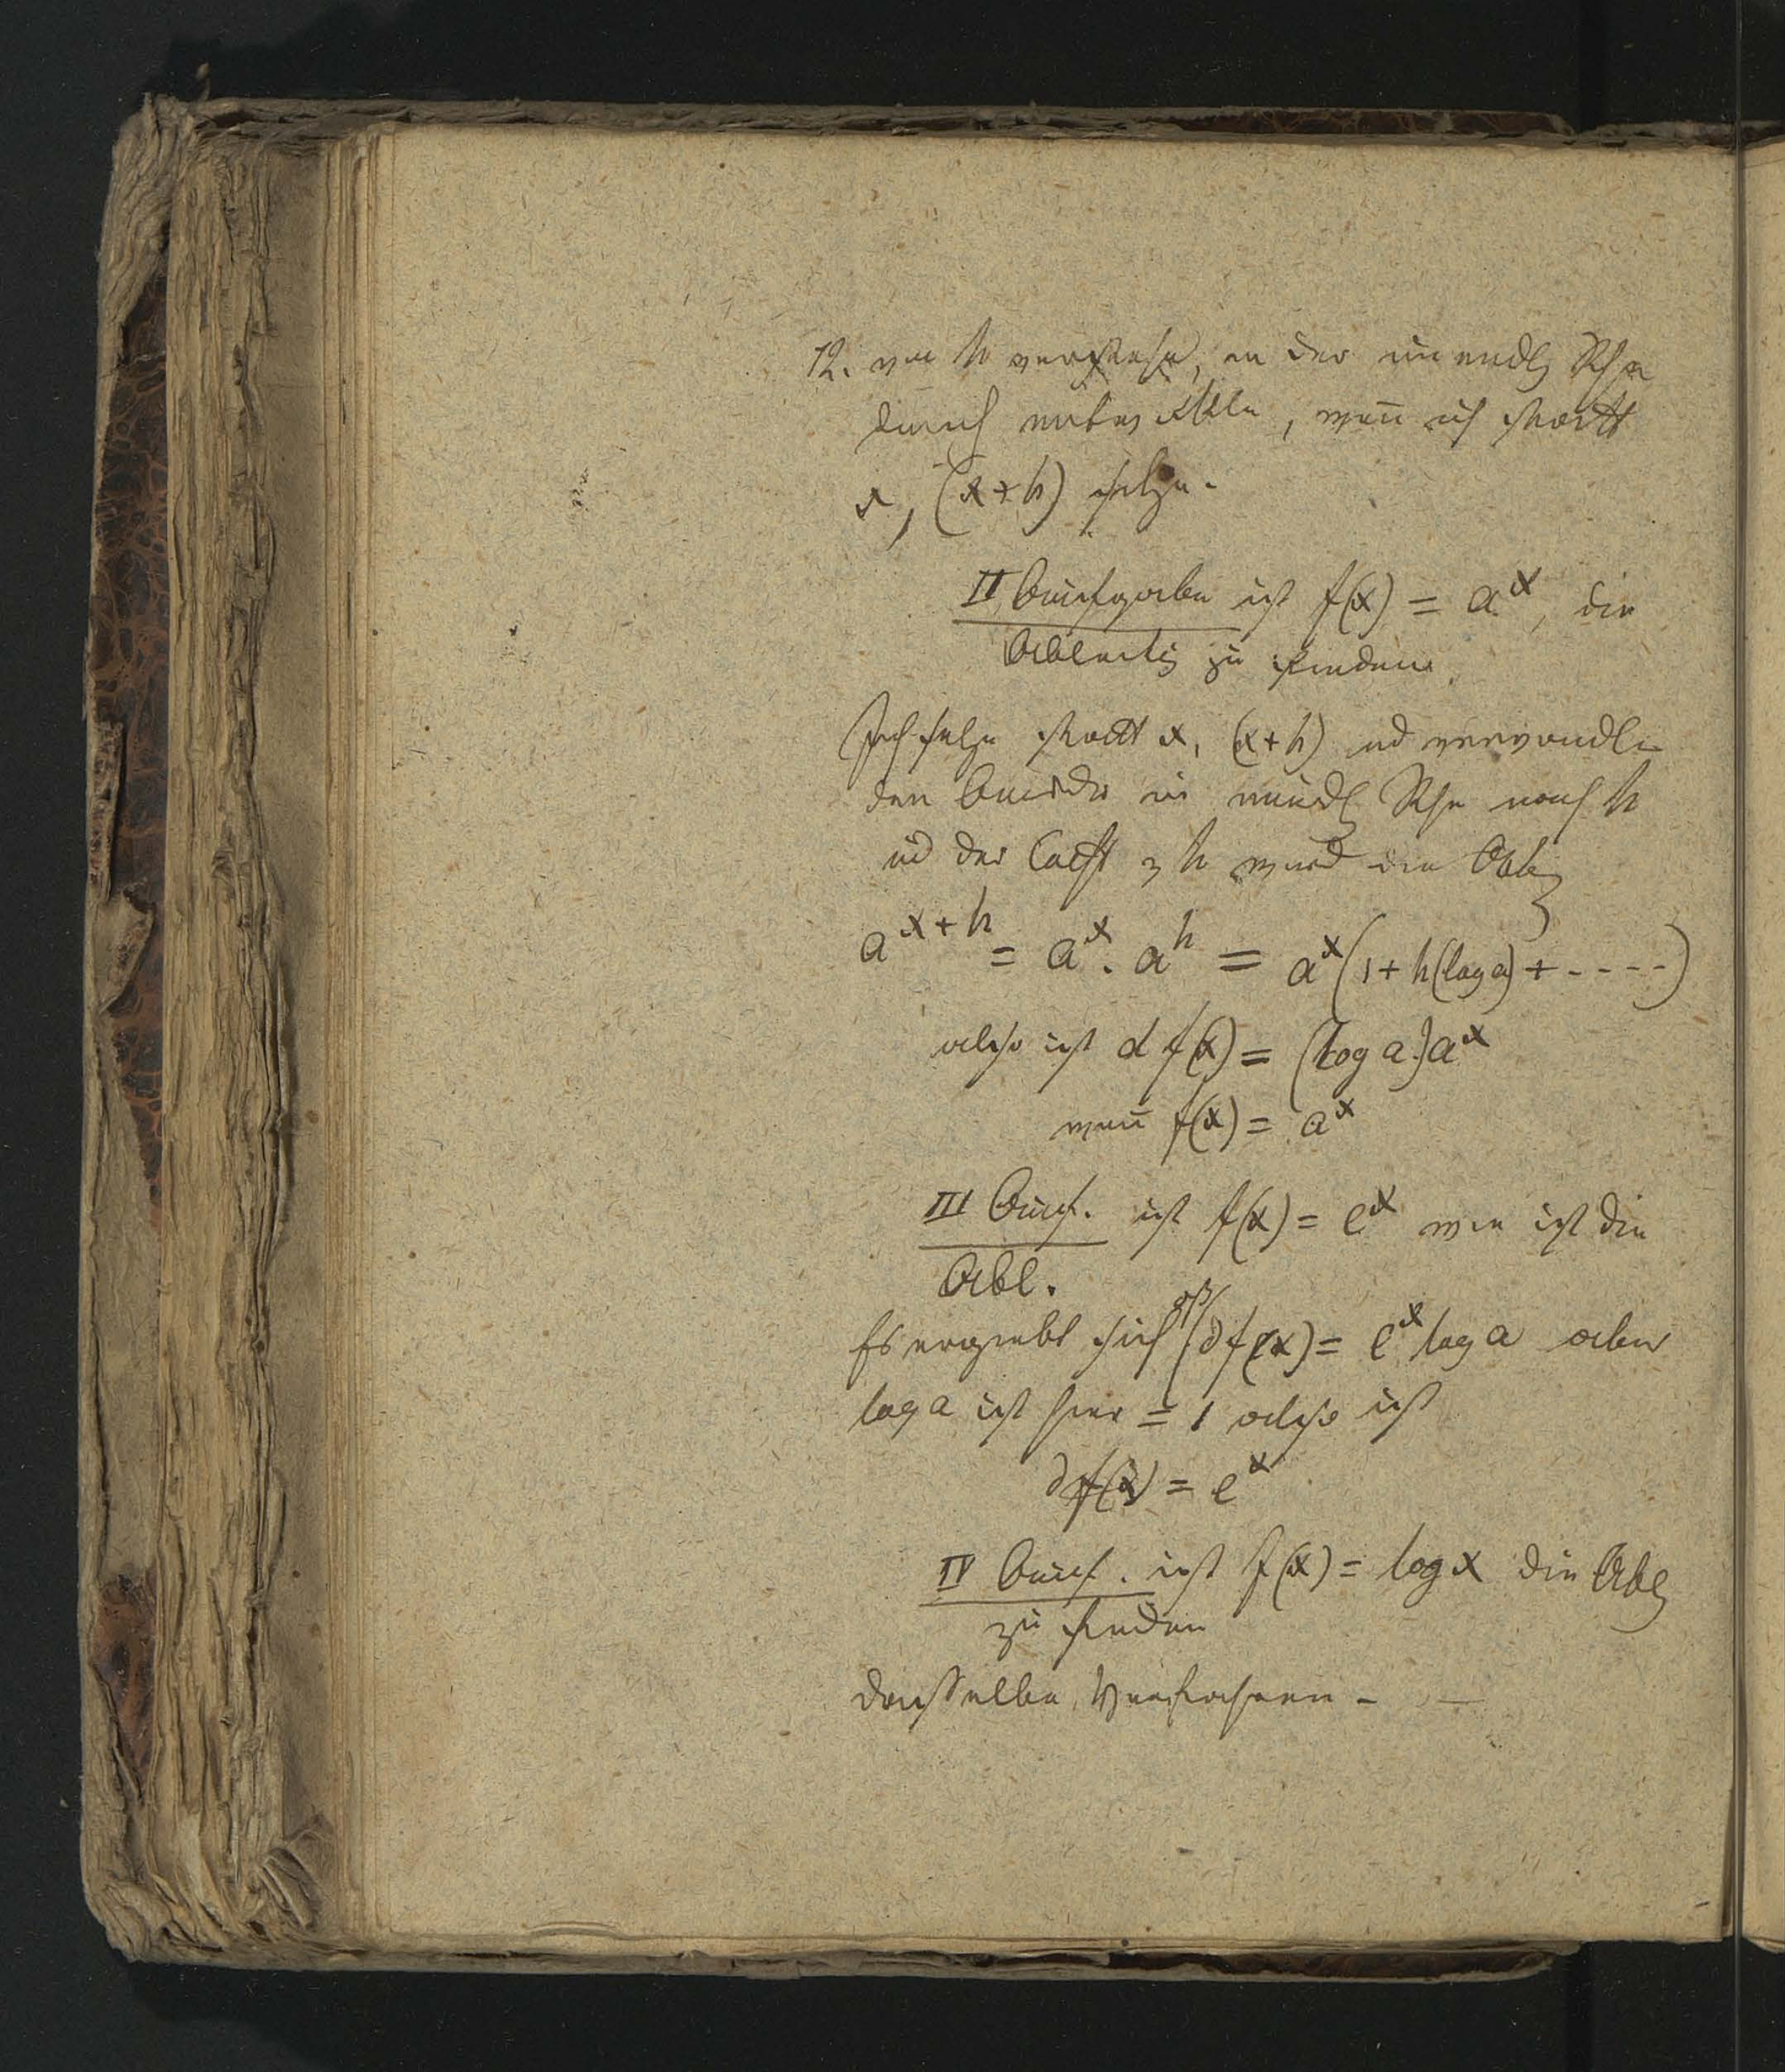 12. von h versteht, in der unendl Rhe
durch entwickele, wen̄ ich statt
x, (x+h) setze.
II Aufgabe ist f(x) = a^x, die
Ableitg zu finden
Ich setze statt x, (x+h) ud verwandle
den Ausdr in unendl Rhe nach h
ud der Coeff v h wird die Ablg
a^{x+h} = a^x . a^h = a^x (1 + h(log a) + - - - -)
also ist d f(x) = (log a) a^x
wen̄ f(x) = a^x
III Auf. ist f(x) = e^x wie ist die
Abl.
Es ergiebt sich d f(x) = e^x log a aber
log a ist hier = 1 also ist
d f(x) = e^x
IV Auf. ist f(x) = log x die Ablg
zu finden
dasselbe Verfahren -